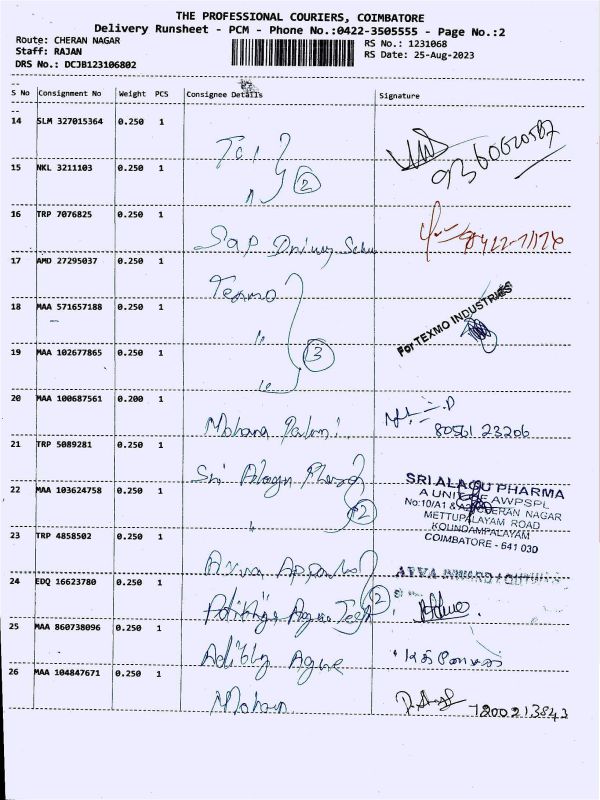 THE PROFESSIONAL COURIERS, COIMBATORE
Delivery Runsheet - PCM - Phone No.:0422-3505555 - Page No.:2
Route: CHERAN NAGAR RS No.: 1231068
Staff: RAJAN RS Date: 25-Aug-2023
DRS No.: DCJB123106802
S No Consignment No Weight PCS Consignee Details Signature
14 SLM 327015364 0.250 1
15 NKL 3211103 0.250 1 2
16 TRP 7076825 0.250 1
17 AMD 27295037 0.250 1 Texmo
18 MAA 571657188 0.250 1 For TEXMO INDUSTRIES
19 MAA 102677865 0.250 1 3
20 MAA 100687561 0.200 1 Mohana
80561 23206
21 TRP 5089281 0.250 1 Sri
SRI ALAGU PHARMA
A UNIT OF AWPSPL
22 MAA 103624758 0.250 1 2
CHERAN NAGAR
METTUPALAYAM ROAD
KOUNDAMPALAYAM
COIMBATORE - 641 030
23 TRP 4858502 0.250 1
24 EDQ 16623780 0.250 1 2
25 MAA 860738096 0.250 1
26 MAA 104847671 0.250 1 Mohan
7200213843